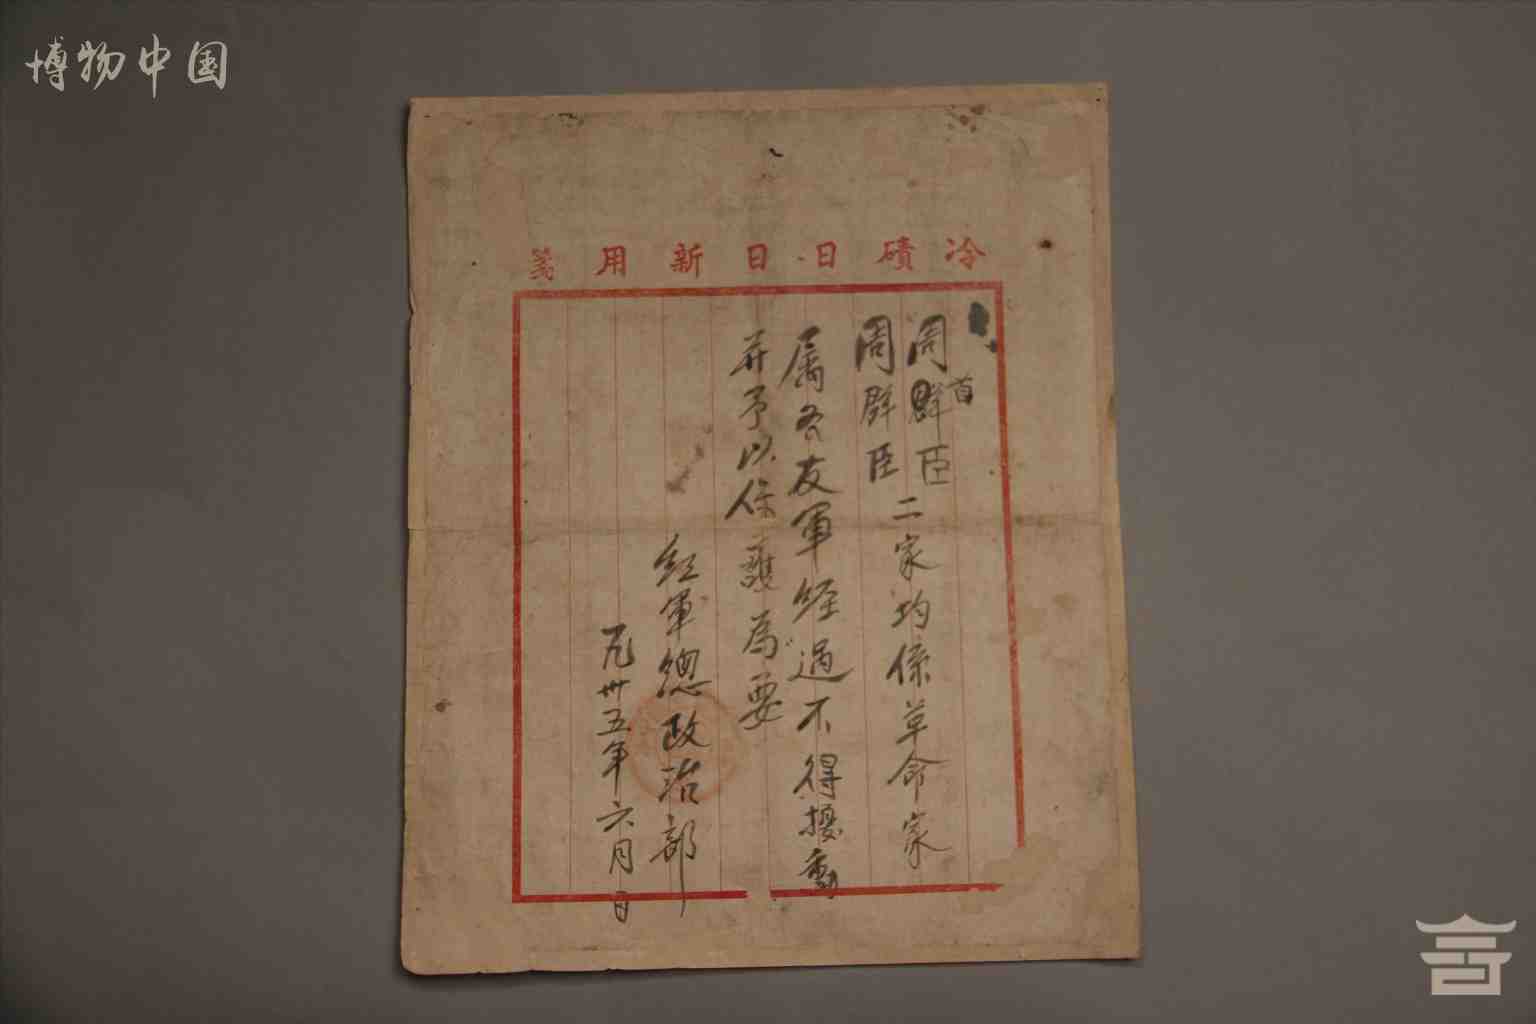 博物中国
冷磧日日新用箋
周群臣
首
周群臣二家均係革命家
属各友軍經過不得擾動
并予以保護爲要
紅軍總政治部
一九卅五年六月日